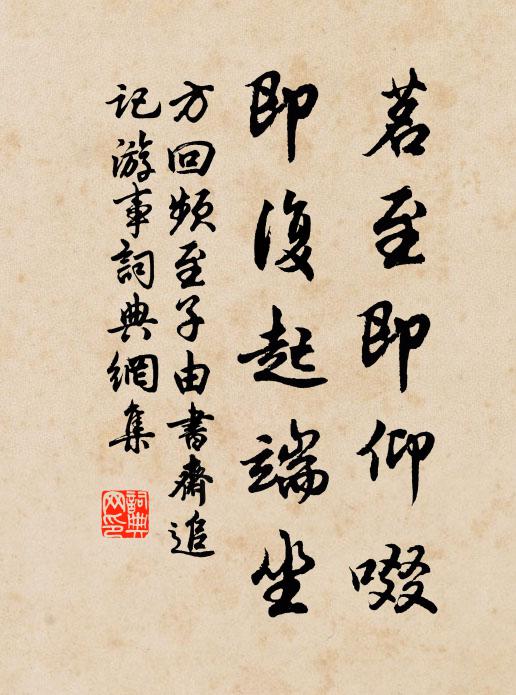 茗至即仰啜
即復起端坐
方回頻至子由書齋追
記游事詞典網集
詞典网印